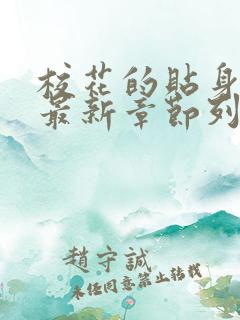 校花的貼身
最新章節列
趙守誠
未經同意禁止轉載